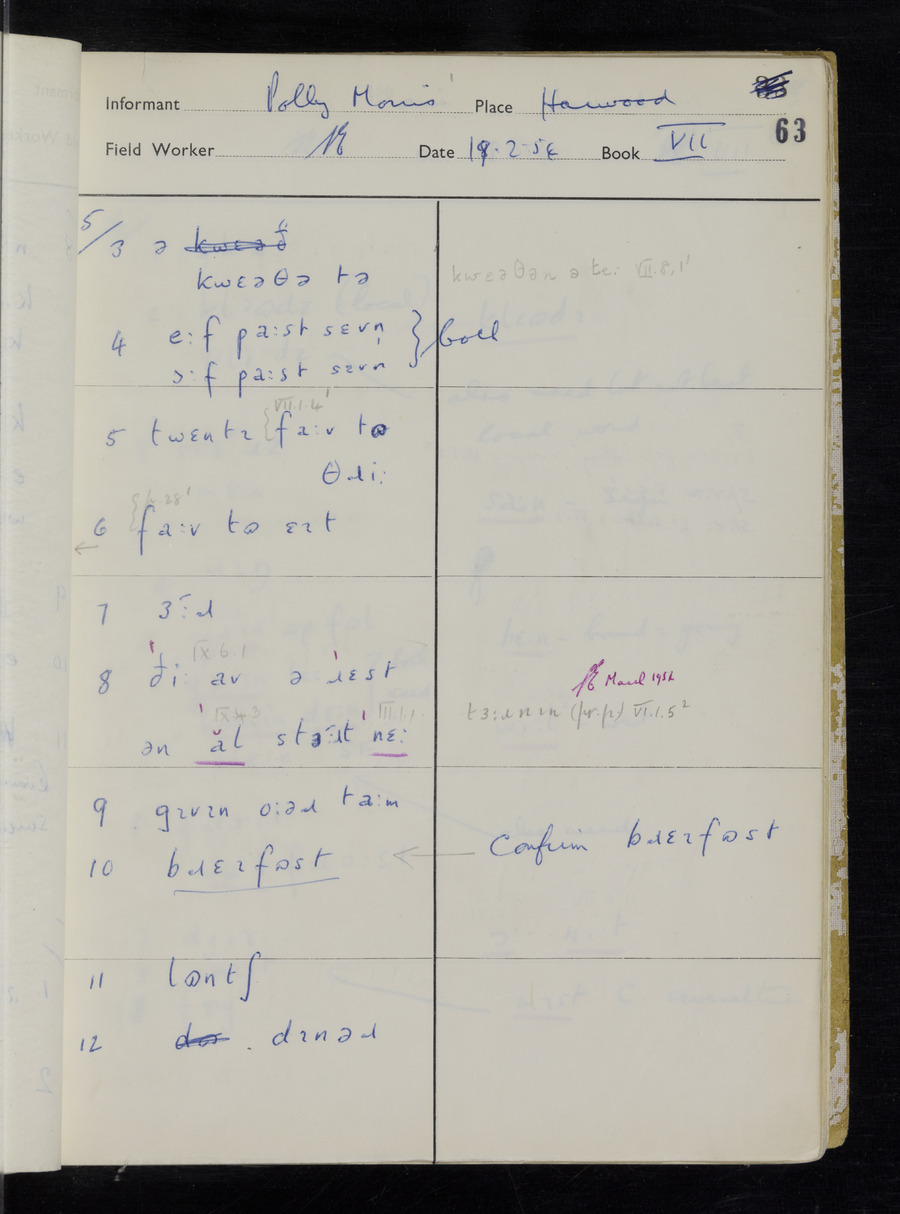 Informant Polly Morris Place Harwood
63
Field Worker Date 19·2·54 Book VII
5/3 ə
kwɛəθə tə
kwɛəθəɹ ə te: VII.8,1'
4 e:f pa:st sɛvn̩ } both
ɔ:f pa:st sɛvn̩
VII.1.4'
5 twɛntɪ fa:v tə
θɹi:
6 fa:v tə ɛɪt
7 ɜ:ɹ
IX.6.1
8 ði: av ə ɹɛst
March 1956
IX.4.3 III.1.1.
tɜ:ɹnɪn (pr.p.) VI.1.5²
ən al stə:ɹt nɛ:
9 gɪvɪn o:əɹ ta:m
10 bɹɛɪfəst ← Confirm bɹɛɪfəst
11 lɷntʃ
12 dɪnəɹ